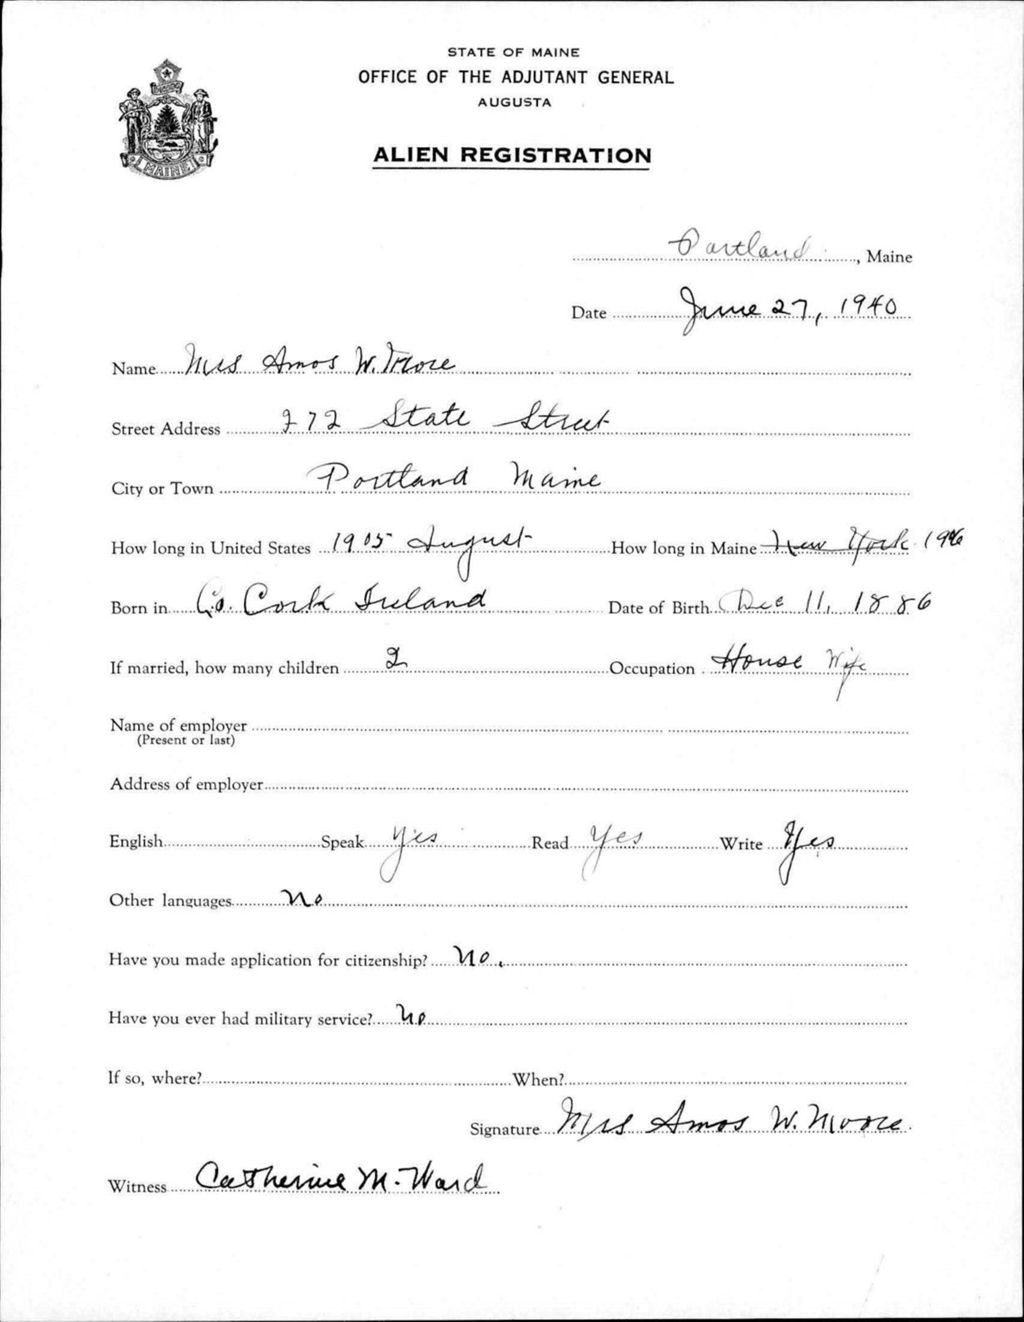 STATE OF MAINE
OFFICE OF THE ADJUTANT GENERAL
AUGUSTA
ALIEN REGISTRATION
MAINE
Portland, Maine
Date June 27, 1940
Name Mrs Amos W. Moore
Street Address 272 State Street
City or Town Portland Maine
How long in United States 1905 August How long in Maine New York
Born in Co. Cork Ireland Date of Birth Dec 11, 1886
If married, how many children 2 Occupation House Wife
Name of employer
(Present or last)
Address of employer
English Speak Yes Read Yes Write Yes
Other languages No
Have you made application for citizenship? No.
Have you ever had military service? No
If so, where? When?
Signature Mrs Amos W. Moore.
Witness Catherine M. Ward